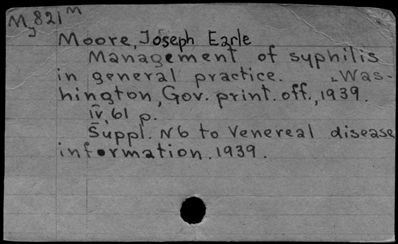 M821m
J
Moore, Joseph Earle
Management of syphilis
in general practice. Was-
hington, Gov. print. off., 1939.
iv, 61 p.
Suppl. N6 to Venereal disease
information. 1939.